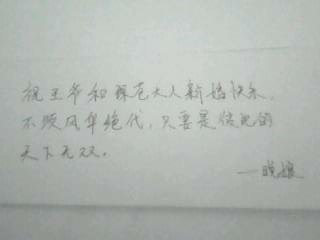 祝王爷和 大人新婚快乐,
不须风华绝代,只要是彼此的
天下无双。
——晚娘